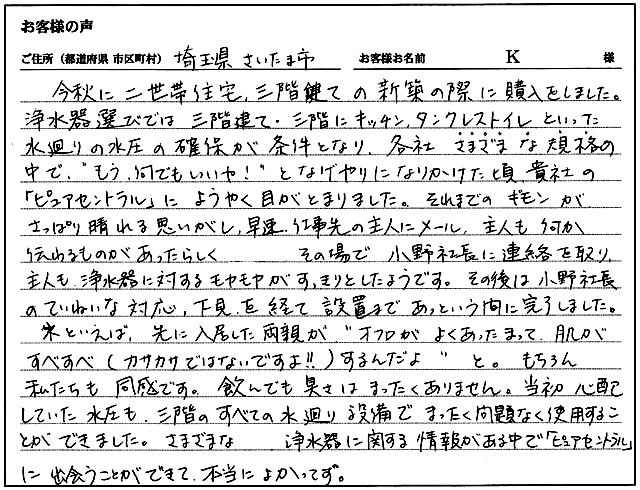 お客様の声
ご住所（都道府県 市区町村） 埼玉県 さいたま市 お客様お名前 K 様
今秋に二世帯住宅，三階建ての新築の際に購入をしました。
浄水器選びでは 三階建て・三階にキッチン，タンクレストイレといった
水廻りの水圧の確保が条件となり，各社 さまざまな規格の
中で，"もう，何でもいいや！"となげやりになりかけた頃，貴社の
「ピュアセントラル」に ようやく目がとまりました。それまでのギモンが
さっぱり晴れる思いがし，早速，仕事先の主人にメール，主人も何か
伝わるものがあったらしく その場で 小野社長に連絡を取り，
主人も浄水器に対するモヤモヤがすっきりとしたようです。その後は小野社長
のていねいな対応，下見を経て 設置まであっという間に完了しました。
水といえば，先に入居した両親が"オフロが よくあったまって，肌が
すべすべ（カサカサではないですよ!!）するんだよ"と。もちろん
私たちも 同感です。飲んでも臭さはまったくありません。当初 心配
していた水圧も，三階のすべての水廻り設備でまったく問題なく使用するこ
とができました。さまざまな 浄水器に関する情報がある中で「ピュアセントラル」
に出会うことができて，本当によかったです。